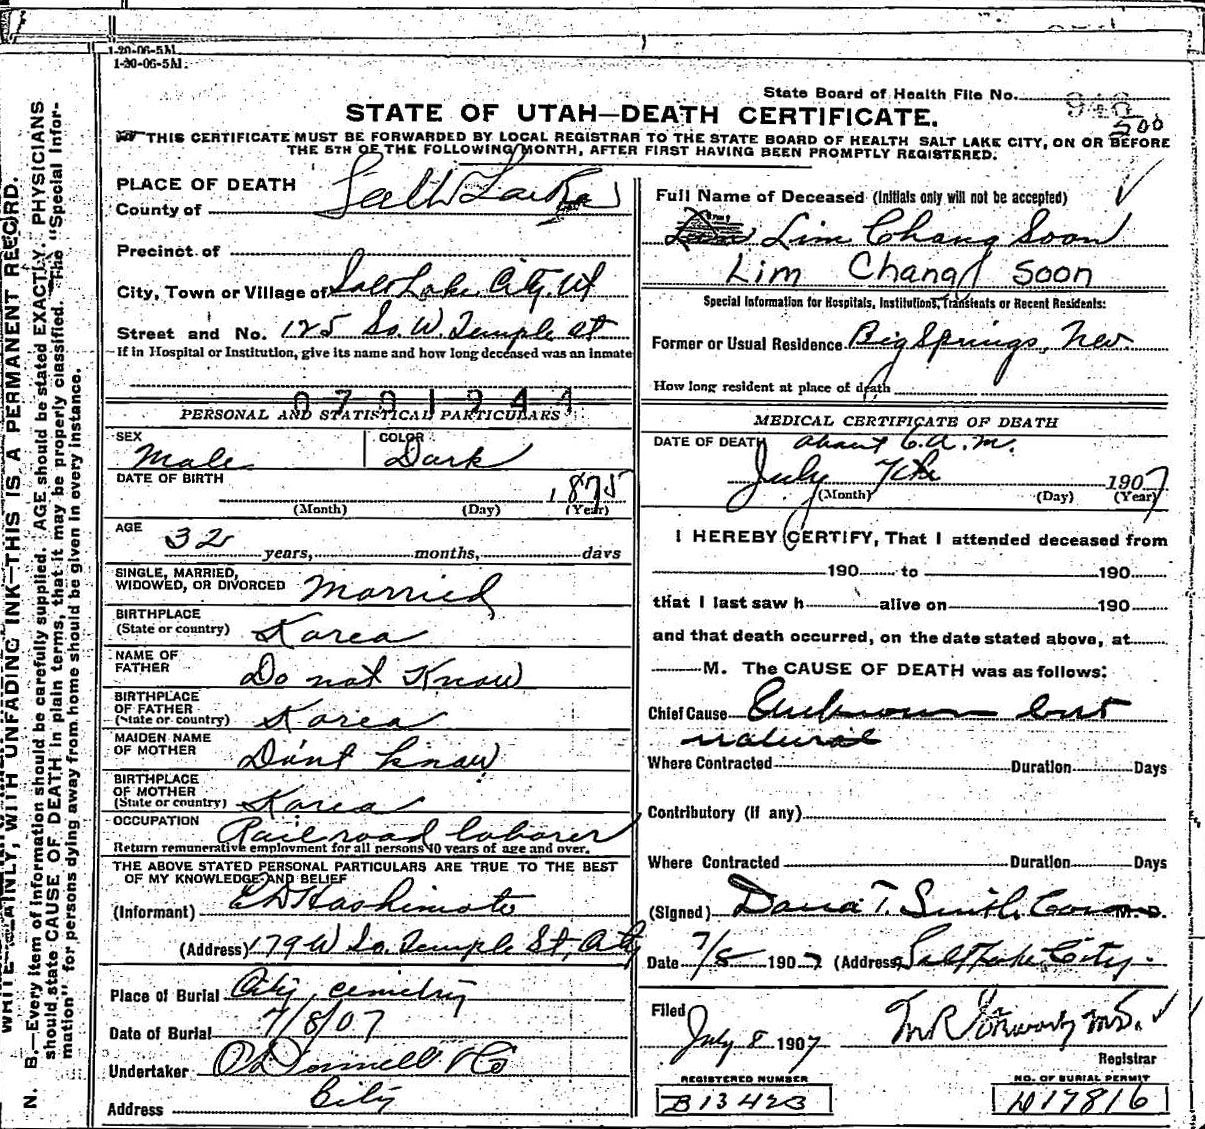 1-20-06-5M.
1-20-06-5M.
State Board of Health File No. 948
500
STATE OF UTAH—DEATH CERTIFICATE.
THIS CERTIFICATE MUST BE FORWARDED BY LOCAL REGISTRAR TO THE STATE BOARD OF HEALTH SALT LAKE CITY, ON OR BEFORE
THE 5TH OF THE FOLLOWING MONTH, AFTER FIRST HAVING BEEN PROMPTLY REGISTERED.
WRITE PLAINLY, WITH UNFADING INK—THIS IS A PERMANENT RECORD.
N. B.—Every item of information should be carefully supplied. AGE should be stated EXACTLY. PHYSICIANS
should state CAUSE OF DEATH in plain terms, that it may be properly classified. The "Special Infor-
mation" for persons dying away from home should be given in every instance.
PLACE OF DEATH
County of Salt Lake
Precinct of
City, Town or Village of Salt Lake City Ut
Street and No. 125 So. W. Temple st
If in Hospital or Institution, give its name and how long deceased was an inmate
0701944
PERSONAL AND STATISTICAL PARTICULARS
SEX Male
COLOR Dark
DATE OF BIRTH 1875
(Month) (Day) (Year)
AGE 32 years, months, days
SINGLE, MARRIED,
WIDOWED, OR DIVORCED Married
BIRTHPLACE
(State or country) Korea
NAME OF
FATHER Do not Know
BIRTHPLACE
OF FATHER
(State or country) Korea
MAIDEN NAME
OF MOTHER Don't know
BIRTHPLACE
OF MOTHER
(State or country) Korea
OCCUPATION Railroad laborer
Return remunerative employment for all persons 10 years of age and over.
THE ABOVE STATED PERSONAL PARTICULARS ARE TRUE TO THE BEST
OF MY KNOWLEDGE AND BELIEF
(Informant) E D Hashimoto
(Address) 179 W So. Temple St, City
Place of Burial City, cemetry
Date of Burial 7/8/07
Undertaker O'Donnell & Co
Address City
Full Name of Deceased (Initials only will not be accepted)
Lim Chang Soon
Lim Chang Soon
Special Information for Hospitals, Institutions, Transients or Recent Residents:
Former or Usual Residence Big Springs, Nev.
How long resident at place of death
MEDICAL CERTIFICATE OF DEATH
DATE OF DEATH about 6 a.m.
July 7th 1907
(Month) (Day) (Year)
I HEREBY CERTIFY, That I attended deceased from
190 to 190
that I last saw h alive on 190
and that death occurred, on the date stated above, at
M. The CAUSE OF DEATH was as follows:
Chief Cause Unknown but
natural
Where Contracted Duration Days
Contributory (if any)
Where Contracted Duration Days
(Signed) Dana T. Smith. Coroner M.D.
Date 7/8 1907 (Address) Salt Lake City.
Filed
July 8 1907 M.D.
Registrar
REGISTERED NUMBER
B 13423
NO. OF BURIAL PERMIT
D17816